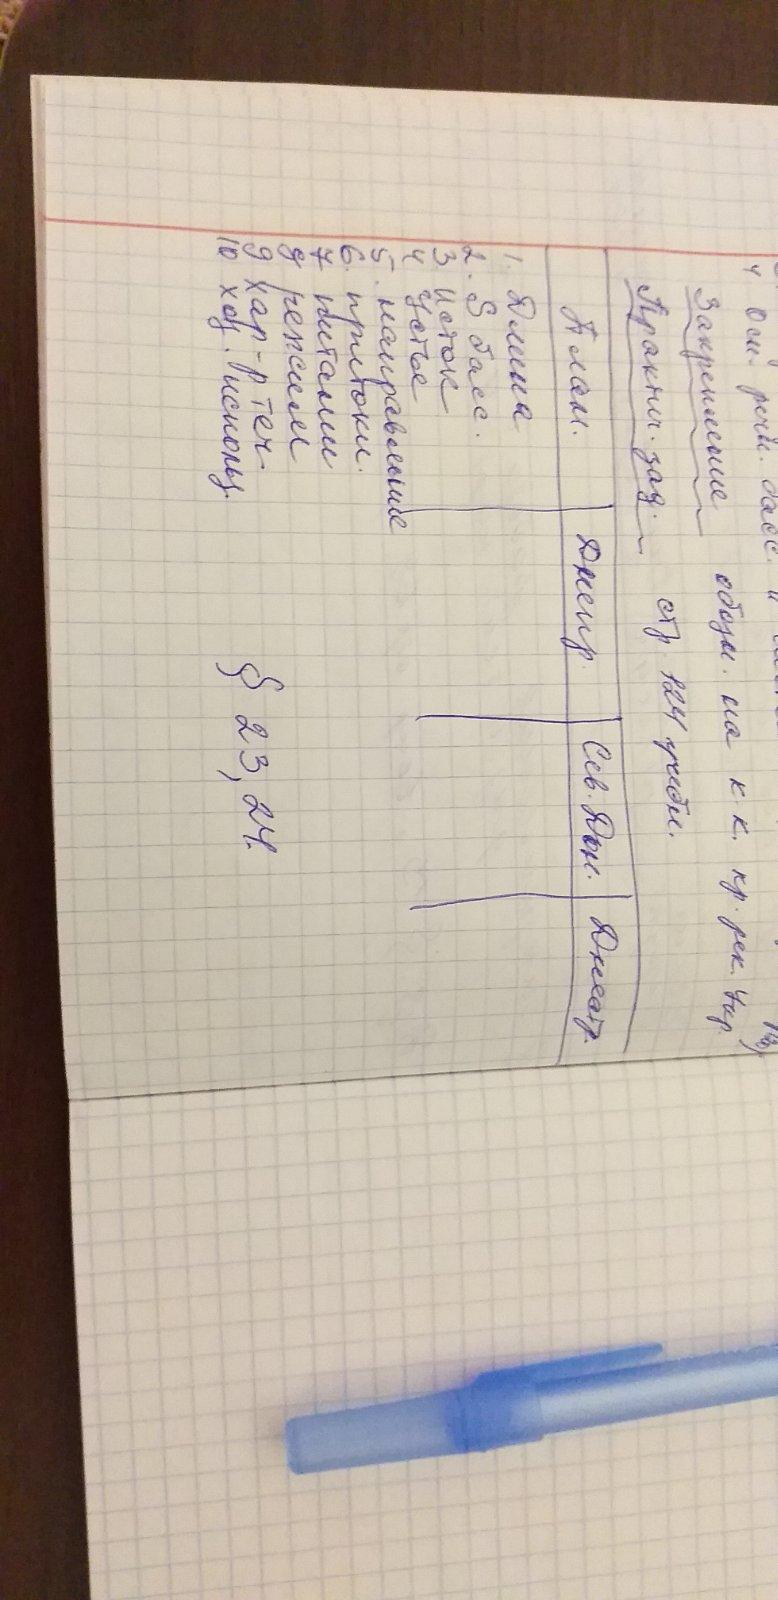 4 осн. речн. басс. и
Закрепление обозн. на к.к. кр. рек. Укр.
Практич. зад. стр 124 учебн.
План. Днепр. Сев. Дон. Днестр.
1. Длина
2. S басс.
3. Исток
4 Устье
5. направление
6. притоки.
7. питание
8. режим
9 хар-р теч.
10 хоз. использ.
§ 23, 24.